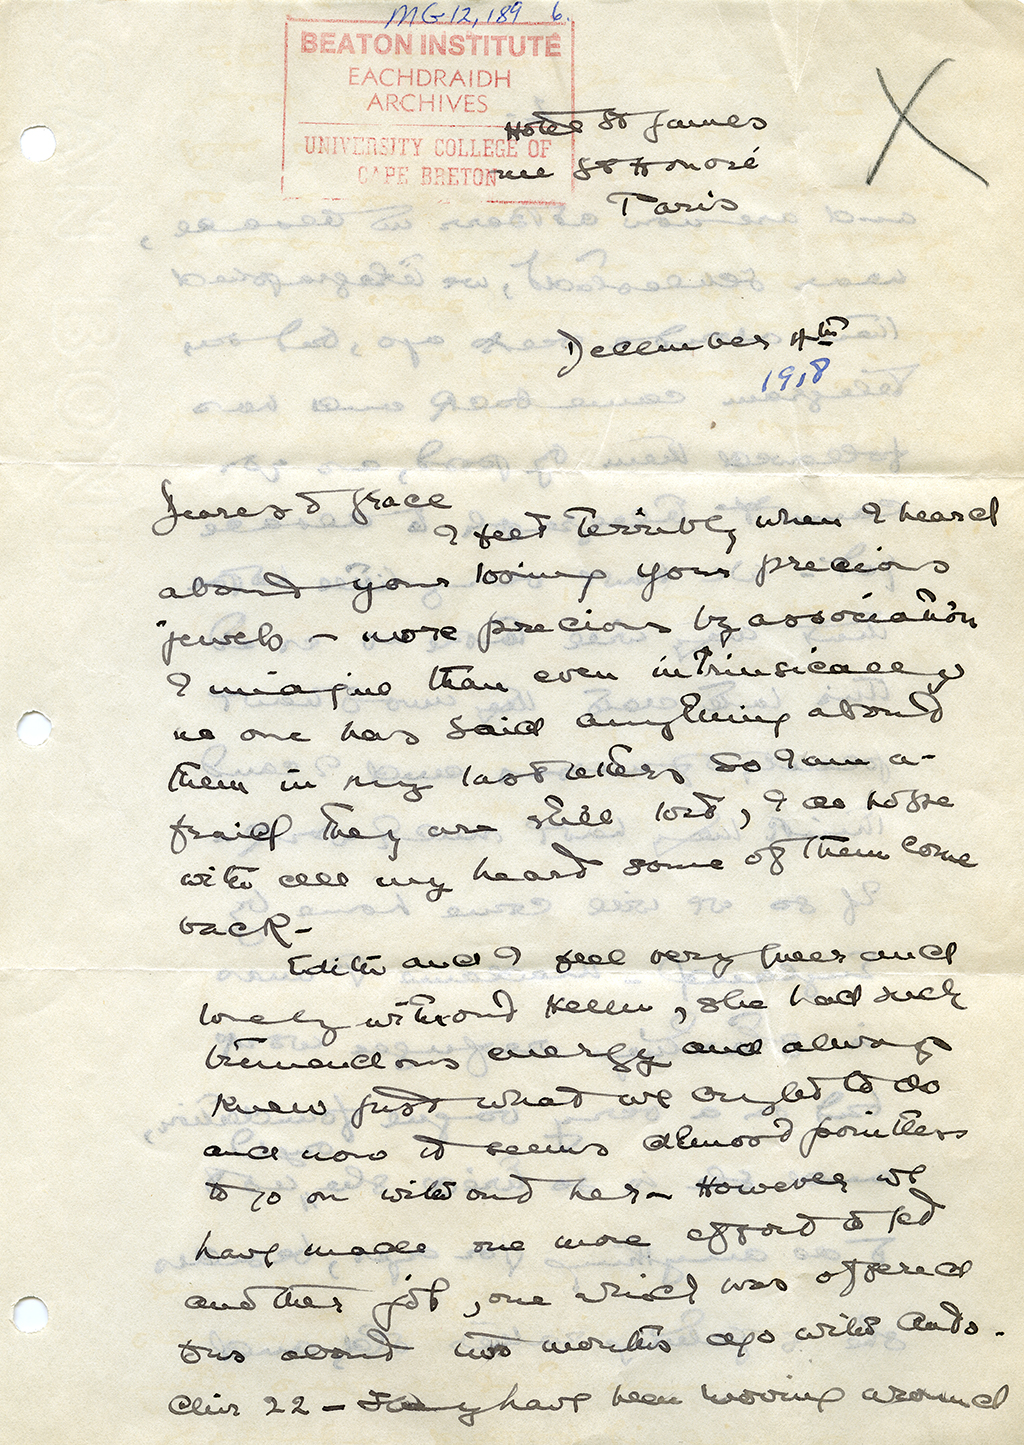 MG 12, 189 6.
BEATON INSTITUTE
EACHDRAIDH
ARCHIVES
UNIVERSITY COLLEGE OF
CAPE BRETON
Hotel St James
rue St Honoré
Paris
December 4th
1918
Dearest Grace
I feel terribly when I heard
about your losing your precious
jewels - more precious by association
I imagine than even intrinsically
no one has said anything about
them in my last letters so I am a-
fraid they are still lost, I do hope
with all my heart some of them come
back -
Edith and I feel very queer and
lonely without Hellen, she had such
tremendous energy and always
knew just what we ought to do
and now it seems almost pointless
to go on without her - However we
have made one more effort to get
another job, one which was offered
us about two months ago with Auto-
Chir 22 - They have been moving around